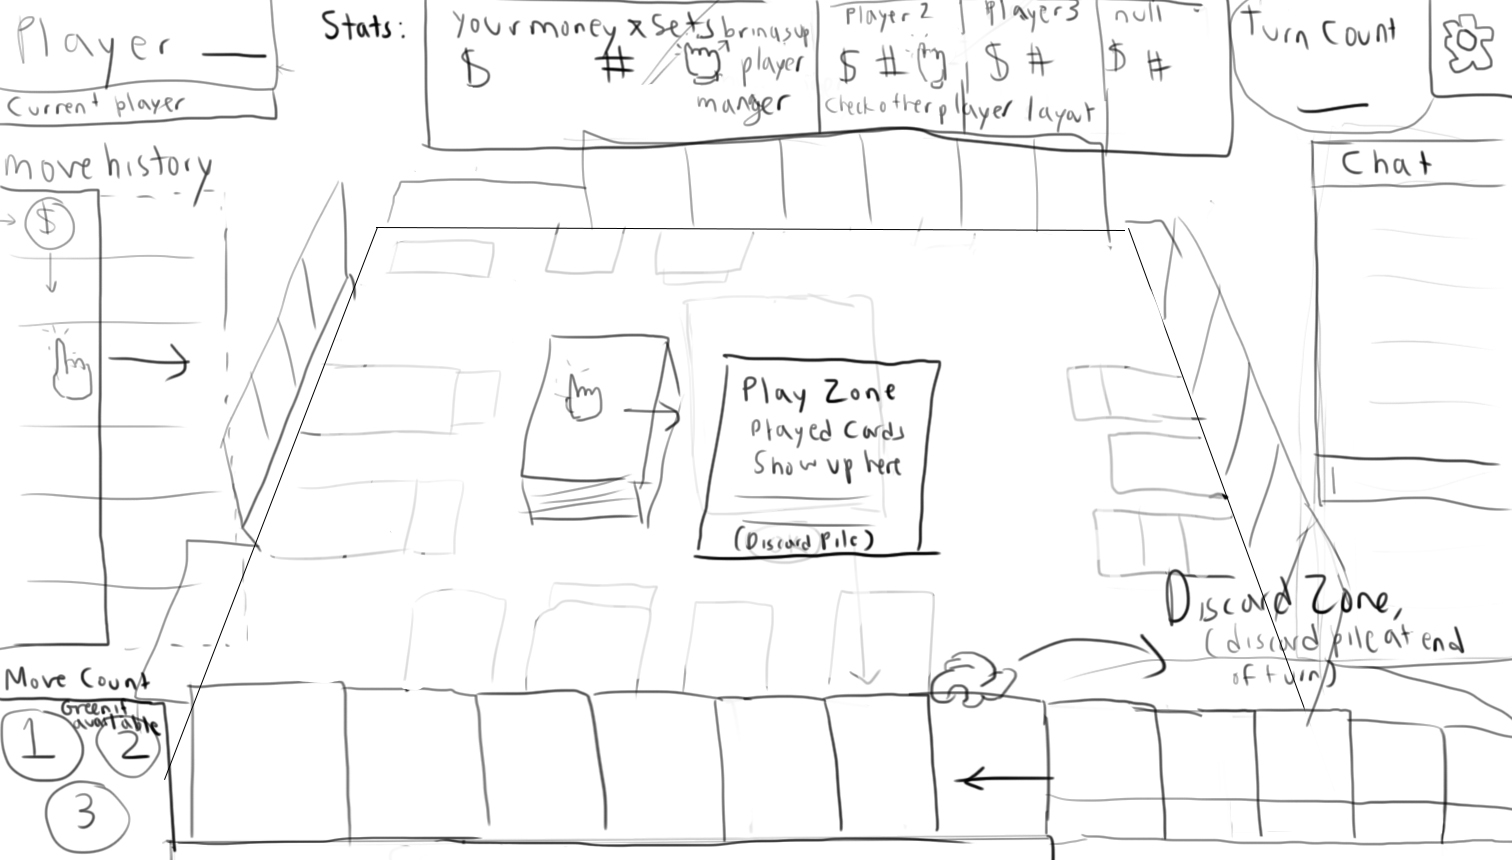 Player __
Current player
Stats:
Your money x Sets brings up
$ # player
manger
Player 2
$ #
Player3
$ #
null
$ #
Check other player layout
Turn Count
move history
$
Chat
Play Zone
Played Cards
Show up here
(Discard Pile)
Discard Zone,
(discard pile at end
of turn)
Move Count
Green if
available
1
2
3